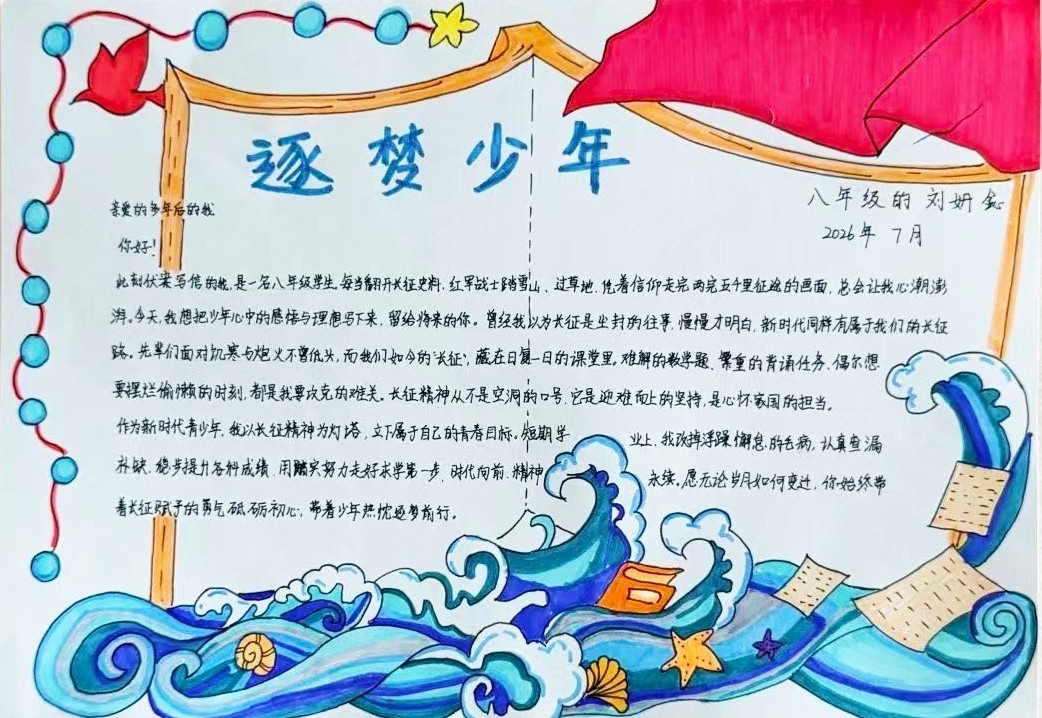 逐梦少年
八年级的 刘妍
2026年 7月
亲爱的多年后的我
你好！
此刻伏案写信的我，是一名八年级学生。每当翻开长征史料，红军战士踏雪山、过草地，凭着信仰走完两万五千里征途的画面，总会让我心潮澎
湃。今天，我想把少年心中的感悟与理想写下来，留给将来的你。曾经我以为长征是尘封的往事，慢慢才明白，新时代同样有属于我们的长征
路。先辈们面对饥寒与炮火不曾低头，而我们如今的“长征”，藏在日复一日的课堂里。难解的数学题、繁重的背诵任务、偶尔想
要摆烂偷懒的时刻，都是我要攻克的难关。长征精神从不是空洞的口号，它是迎难而上的坚持，是心怀家国的担当。
作为新时代青少年，我以长征精神为灯塔，立下属于自己的青春目标。短期学业上，我改掉浮躁懈怠的毛病，认真查漏
补缺，稳步提升各科成绩，用踏实努力走好求学第一步。时代向前，精神永续。愿无论岁月如何变迁，你始终带
着长征赋予的勇气砥砺初心，带着少年热忱逐梦前行。